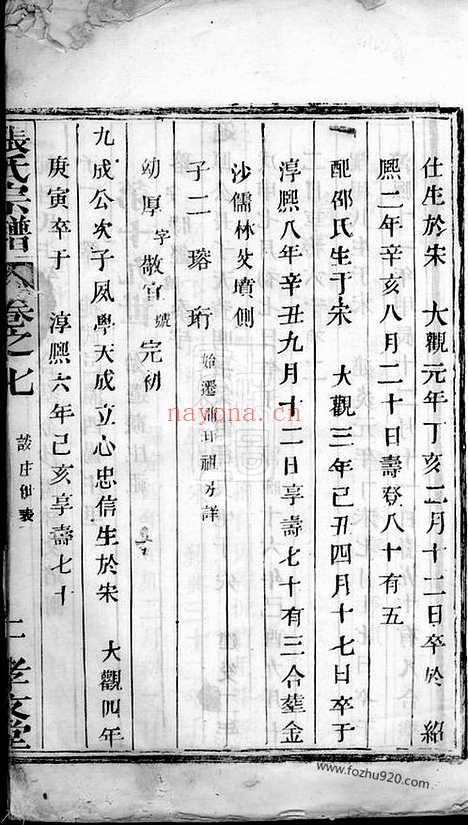 仕生於宋　大觀元年丁亥二月十二日卒於　紹
熙二年辛亥八月二十日壽登八十有五
配邵氏生于宋　大觀三年己丑四月十七日卒于
淳熙八年辛丑九月十二日享壽七十有三合塟金
沙儒林公墳側
子二　瑢　珩　始遷 祖另詳
幼厚 字敬宜 號完初
九成公次子夙學天成立心忠信生於宋　大觀四年
庚寅卒于　淳熙六年己亥享壽七十
張氏宗譜　卷之七　談庄 表　孝友堂
nayona.cn
www.fozhu920.com